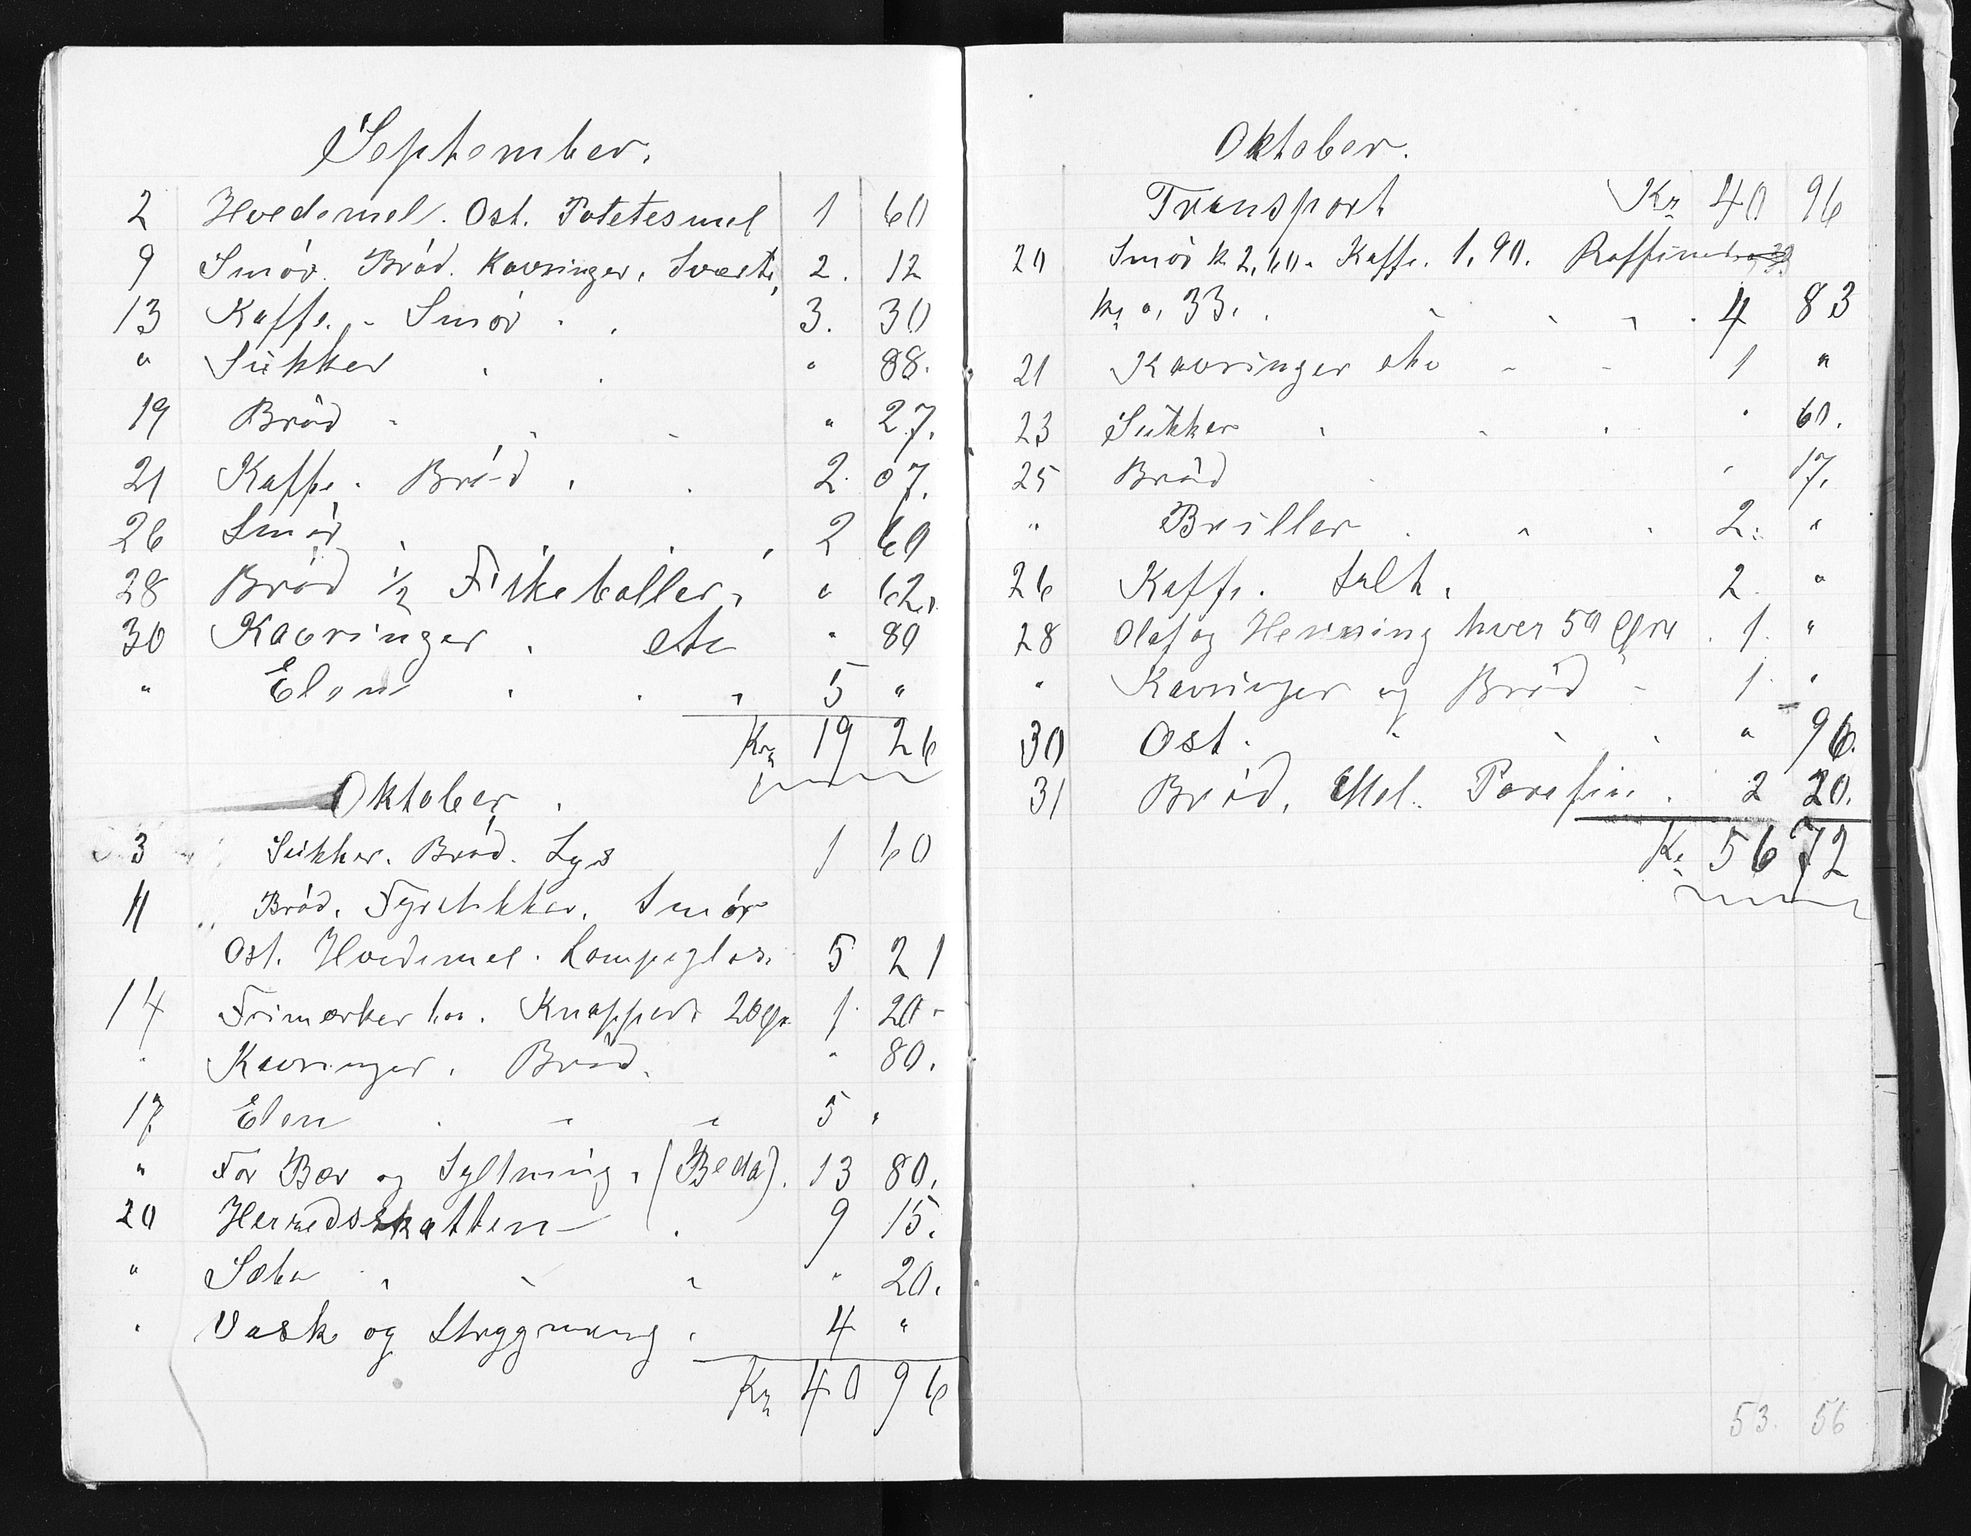 September.
2 Hvedemel. Ost. Potetesmel 1 60
9 Smør. Brød. Kavringer, Sværte, 2. 12
13 Kaffe. - Smør 3. 30
" Sukker " 88.
19 Brød " 27.
21 Kaffe. Brød 2. 07.
26 Smør 2 60
28 Brød ½ Fiskeboller " 62.
30 Kavringer etc " 80
" Elen 5 "
Kr 19 26
Oktober
3 Sukker. Brød. Lys 1 60
11 Brød. Fyrstikker. Smør
Ost. Hvedemel. Lampeglas. 5 21
14 Frimærker kr. Knapper 20 Øre 1. 20
" Kavringer. Brød. " 80.
17 Elen 5 "
" For Bær og Syltning. (Beda). 13 80.
20 Herredsskatten 9 15.
" Sæbe " 20.
" Vask og Strygning. 4 "
Kr 40 96
Oktober.
Transport Kr 40 96
20 Smør k 2,60. Kaffe. 1,90. Raffinad
kr 0, 33. 4 83
21 Kavringer etc 1 "
23 Sukker " 60.
25 Brød " 17.
" Briller 2. "
26 Kaffe. Salt. 2. "
28 Olaf og Henning hver 50 Øre 1. "
" Kavringer og Brød 1 "
30 Ost. " 96.
31 Brød, Mel. Parafin. 2 20.
Kr 56 72
53. 56